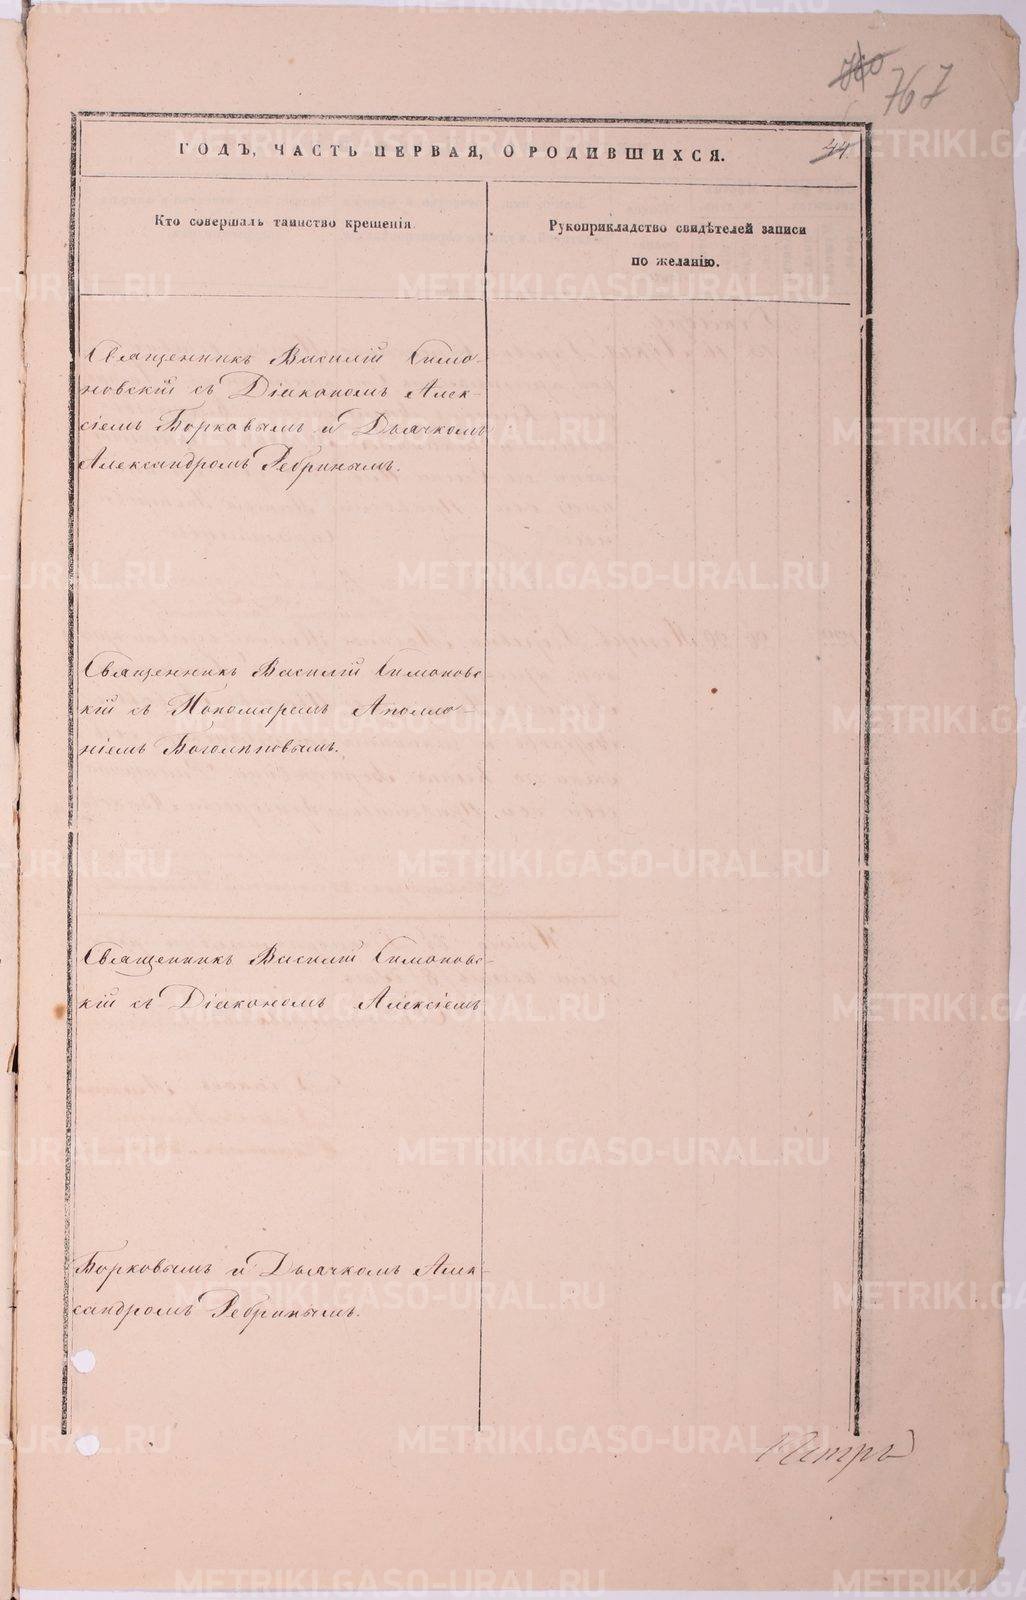 760 767
ГОДЪ, ЧАСТЬ ПЕРВАЯ, О РОДИВШИХСЯ.
44.
Кто совершалъ таинство крещенія.
Рукоприкладство свидѣтелей записи
по желанію.
Священникъ Василій Симо-
новскій съ Діакономъ Алек-
сіемъ Борковымъ и Дьячкомъ
Александромъ Ребринымъ.
Священникъ Василій Симоновс
кій съ Пономаремъ Аполло-
ніемъ Боголѣповымъ.
Священникъ Василій Симоновс-
кій съ Діакономъ Алексіемъ
Борковымъ и Дьячкомъ Алек-
сандромъ Ребринымъ.
METRIKI.GASO-URAL.RU